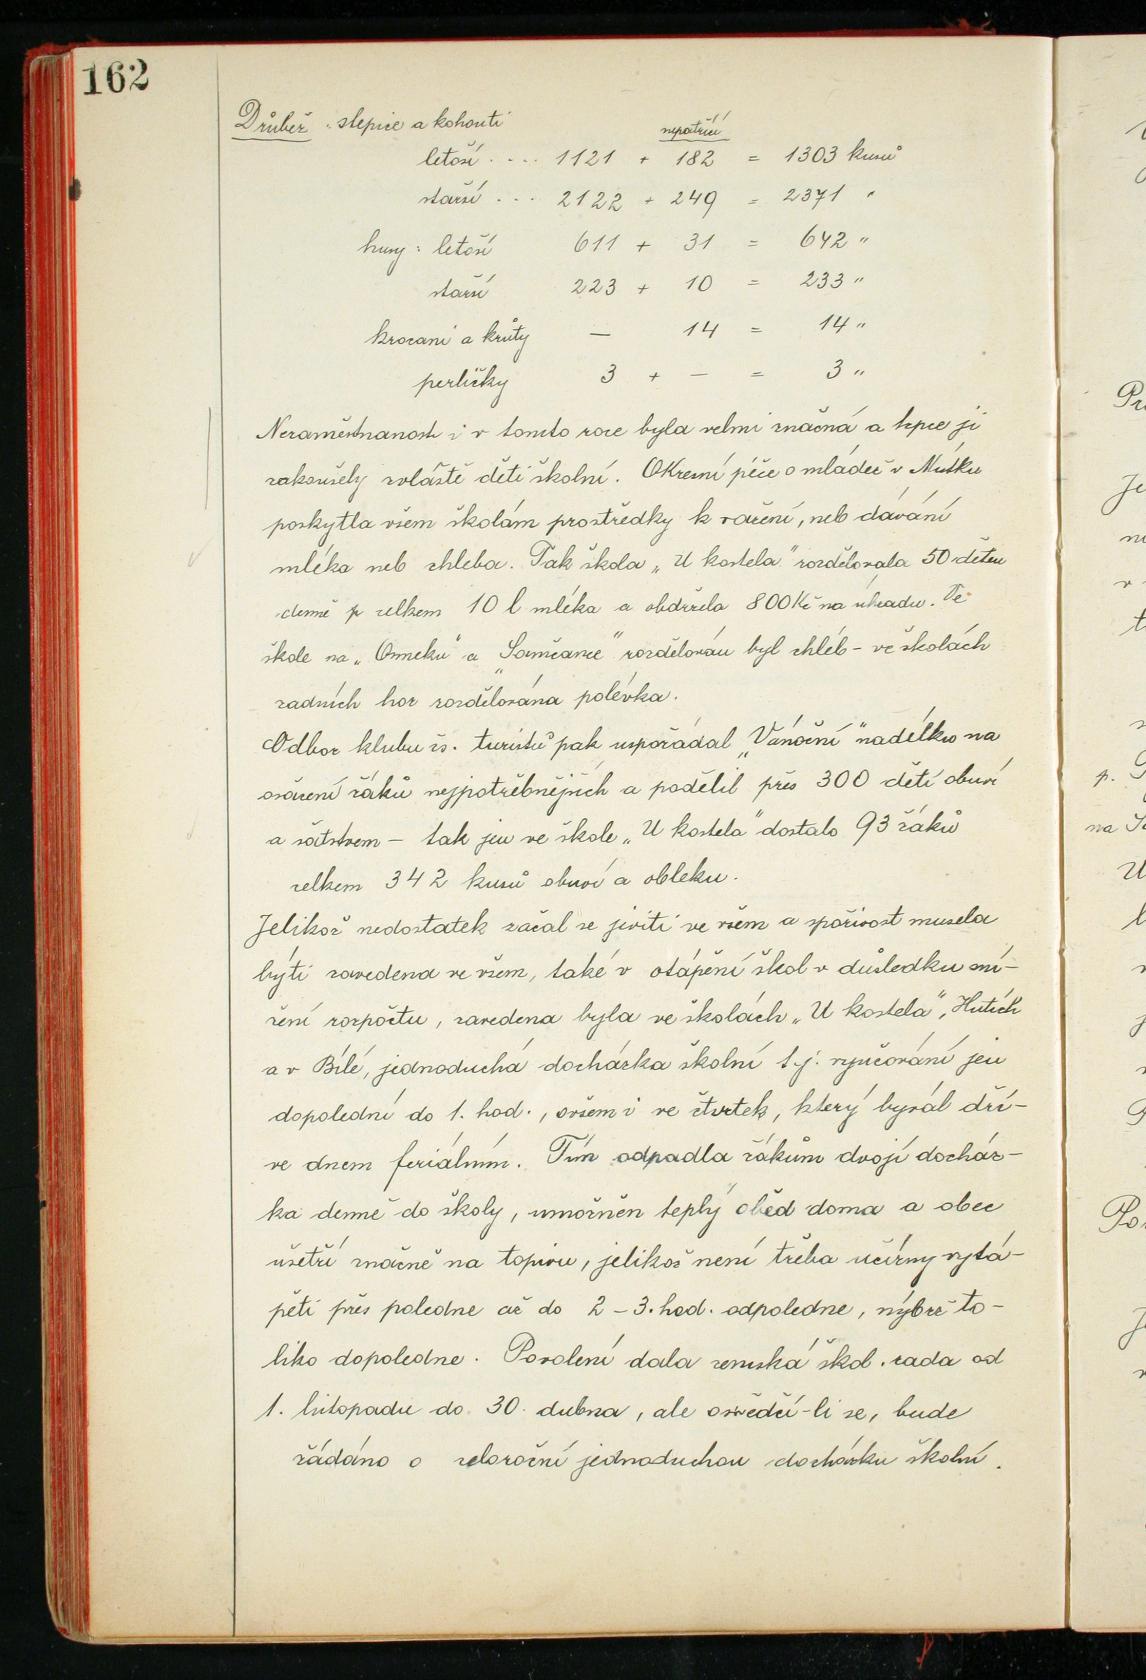 162
Drůbež: slepice a kohouti
nepatřící
letoší .... 1121 + 182 = 1303 kusů
starší ... 2122 + 249 = 2371 "
husy: letoší 611 + 31 = 642 "
starší 223 + 10 = 233 "
krocani a krůty — 14 = 14 "
perličky 3 + — = 3 "
Nezaměstnanost i v tomto roce byla velmi značná a trpce ji
zakoušely zvláště děti školní. Okresní péče o mládež v Místku
poskytla všem školám prostředky k vaření, neb dávání
mléka neb chleba. Tak škola „U kostela" rozdělovala 50 dětem
denně celkem 10 l mléka a obdržela 800 Kč na úhradu. Ve
škole na „ a „Samčance" rozdělován byl chléb – ve školách
zadních hor rozdělována polévka.
Odbor klubu čs. turistů pak uspořádal „Vánoční" nadílku na
ošacení žáků nejpotřebnějších a podělil přes 300 dětí obuví
a šatstvem – tak jen ve škole „U kostela" dostalo 93 žáků
celkem 342 kusů obuvi a obleku.
Jelikož nedostatek začal se jeviti ve všem a spořivost musela
býti zavedena ve všem, také v otápění škol v důsledku sní-
žení rozpočtu, zavedena byla ve školách „U kostela", Hutích
a v Bílé, jednoduchá docházka školní t.j. vyučování jen
dopolední do 1. hod., ovšem i ve čtvrtek, který býval dří-
ve dnem feriálním. Tím odpadla žákům dvojí docház-
ka denně do školy, umožněn teplý oběd doma a obec
ušetří značně na topivu, jelikož není třeba učírny vytá-
pěti přes poledne až do 2 – 3. hod. odpoledne, nýbrž to-
liko dopoledne. Povolení dala zemská škol. rada od
1. listopadu do 30. dubna, ale osvědčí-li se, bude
žádáno o celoroční jednoduchou docházku školní.